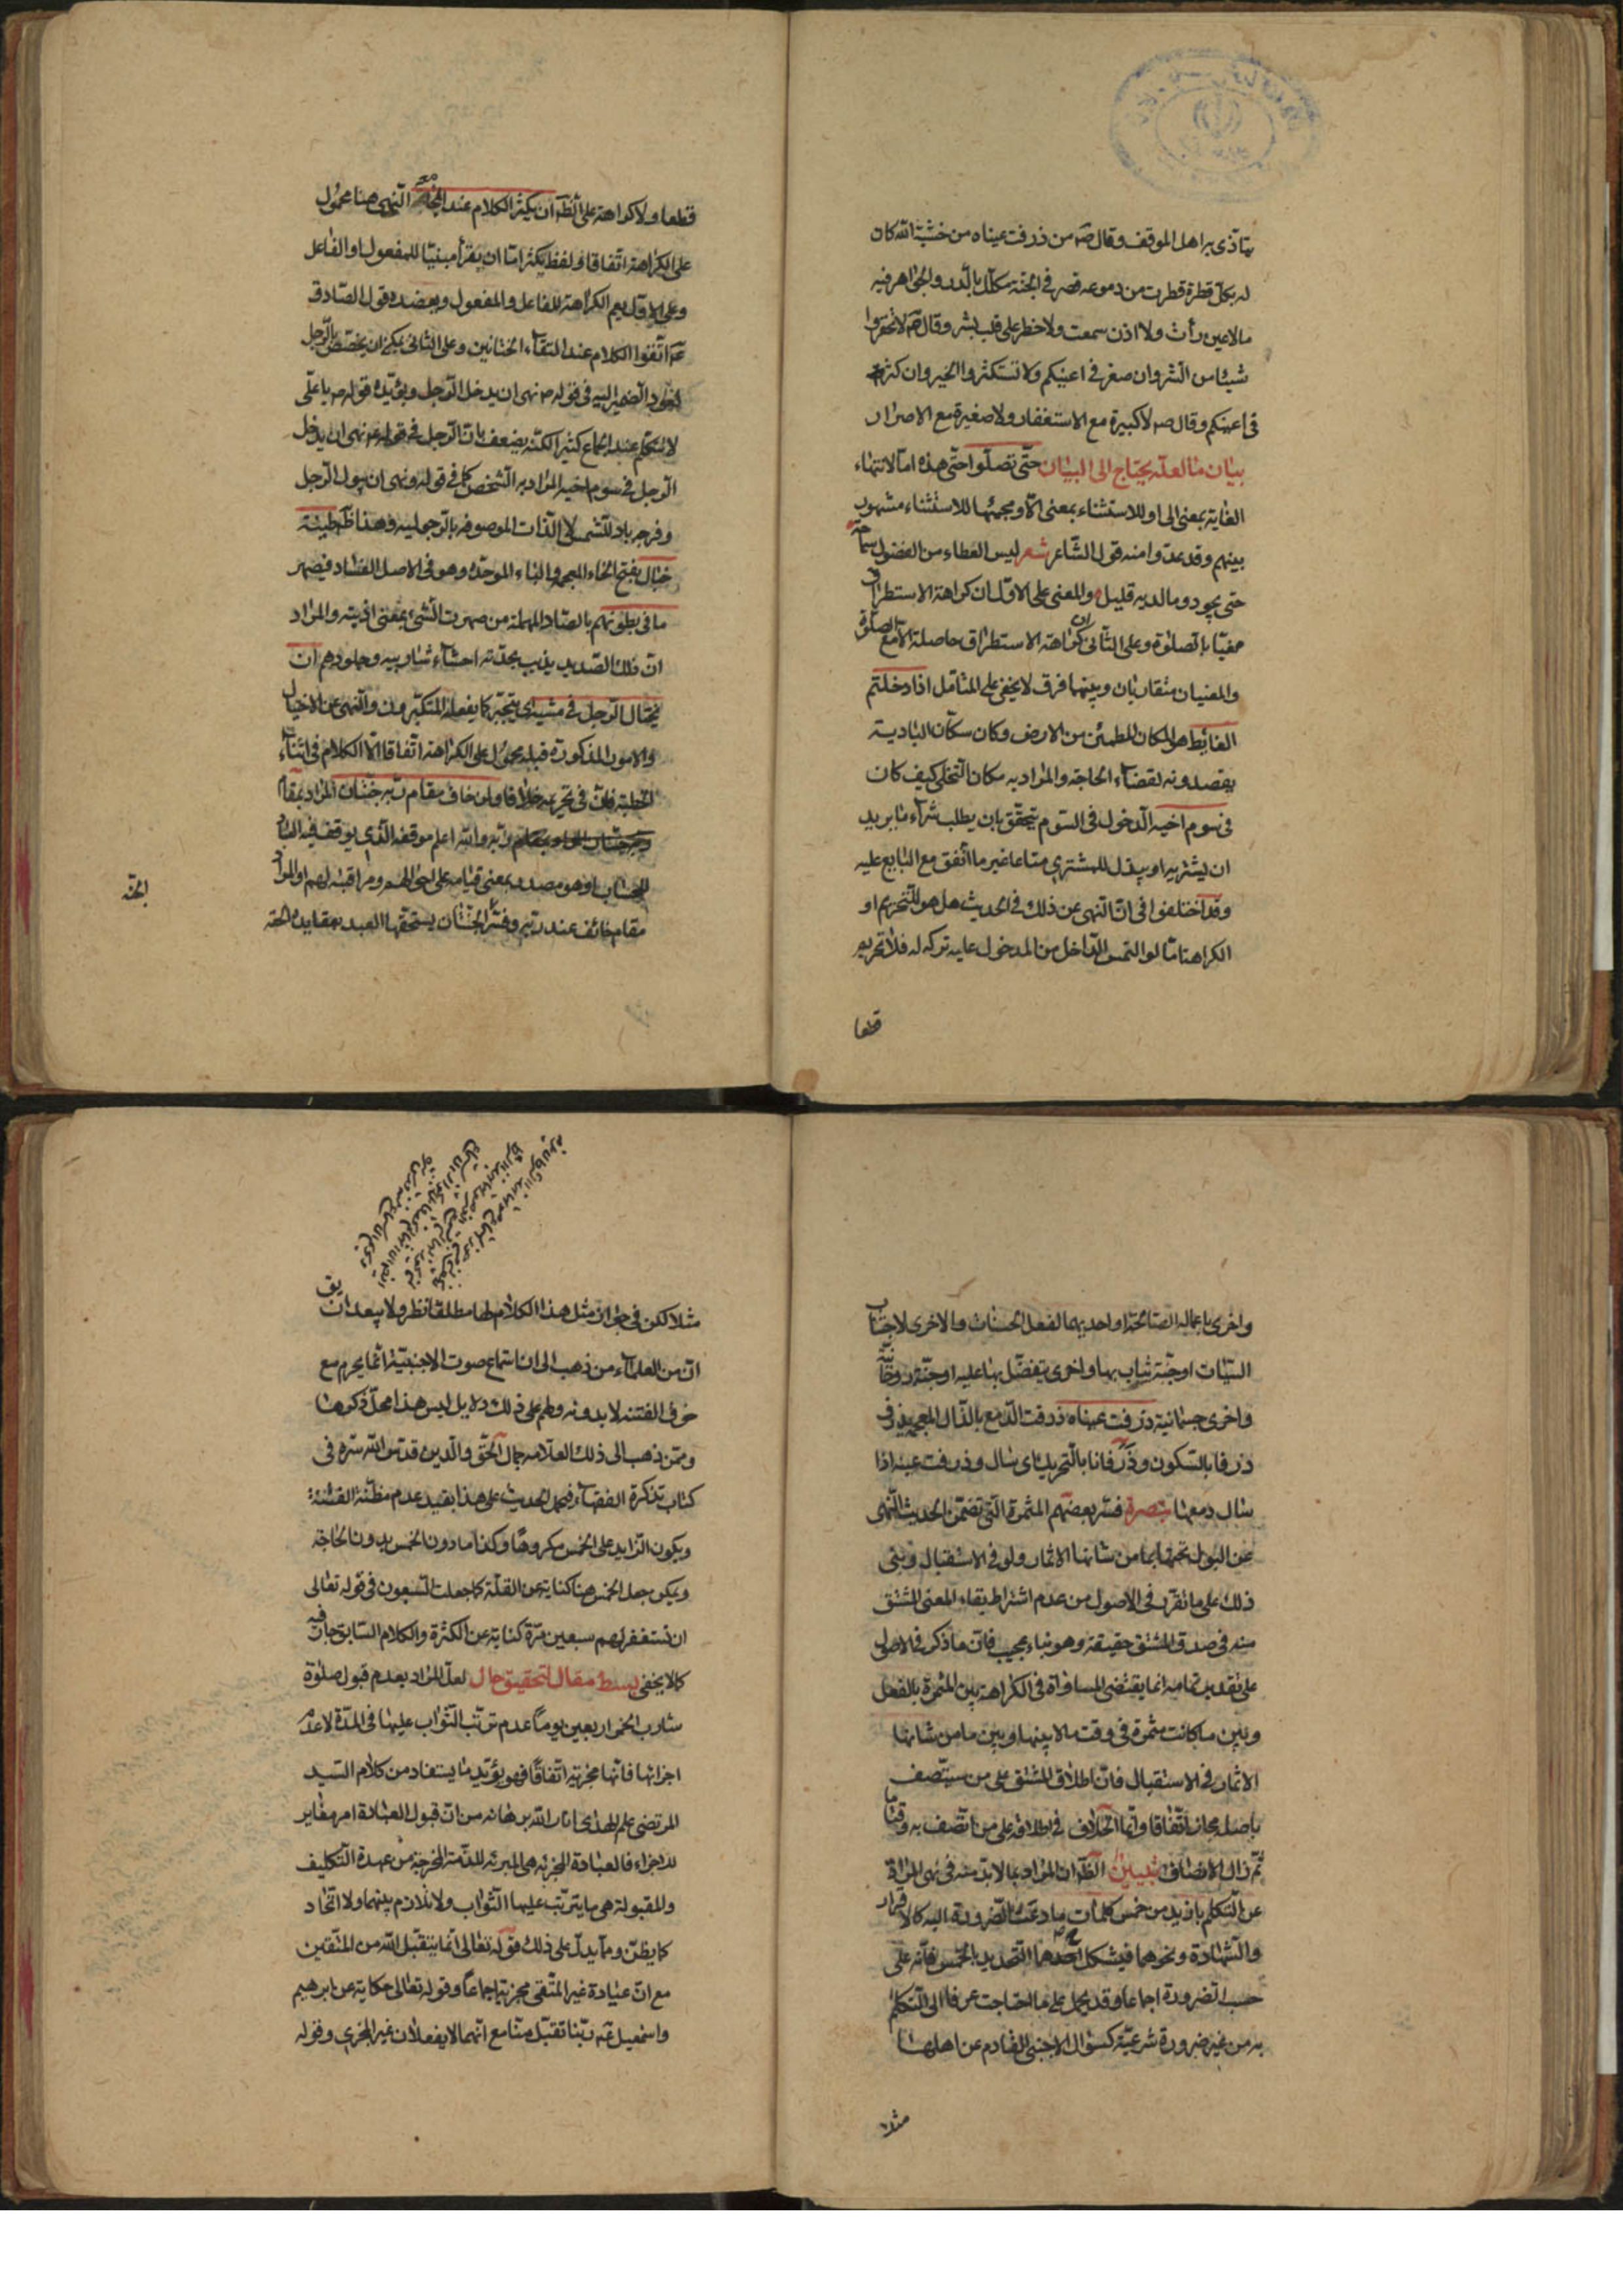 يتأذى به اهل الموقف وقال صه من ذرفت عيناه من خشية الله كان
له بكل قطرة قطرت من دموعه قصر في الجنة مكلل بالدر والجواهر فيه
ما لا عين رأت ولا اذن سمعت ولا خطر على قلب بشر وقال صه لا تحقروا
شيئا من الشر وان صغر في اعينكم ولا تستكثروا الخير وان كثر
في اعينكم وقال صه لا كبيرة مع الاستغفار ولا صغيرة مع الاصرار
بيان ما لعله يحتاج الى البيان حتى تصلوا حتى هذه اما لانتهاء
الغاية بمعنى الى او للاستثناء بمعنى الا ومجيئها للاستثناء مشهور
بينهم وقد عدوا منه قول الشاعر شعر ليس العطاء من الفضول سماحة
حتى يجود وما لديه قليل والمعنى على الاول ان كراهة الاستطراق
مغيا بالصلوة وعلى الثاني ان كراهة الاستطراق حاصلة الا مع الصلوة
والمعنيان متقاربان وبينهما فرق لا يخفى على المتأمل اذا دخلتم
الغايط هو المكان المطمئن من الارض وكان سكان البادية
يقصدونه لقضاء الحاجة والمراد به مكان التخلي كيف كان
في سوم اخيه الدخول في السوم يتحقق بان يطلب شراء ما يريد
ان يشتريه او يبذل للمشتري متاعا غير ما اتفق مع البايع عليه
وقد اختلفوا في ان النهي عن ذلك في الحديث هل هو للتحريم او
الكراهة اما لو التمس الداخل من المدخول عليه تركه له فلا تحريم
قطعا
قطعا ولا كراهة على الظ ان يكثر الكلام عند المجامعة النهي هنا محمول
على الكراهة اتفاقا ولفظ يكثر اما ان يقرأ مبنيا للمفعول او الفاعل
وعلى الاول يعم الكراهة للفاعل والمفعول ويعضده قول الصادق
عه اتقوا الكلام عند التقاء الختانين وعلى الثاني يمكن ان يختص بالرجل
لعود الضمير اليه في قوله ص نهى ان يدخل الرجل ويؤيده قوله ص يا علي
لا تتكلم عند الجماع كثيرا لكنه يضعف بان الرجل في قوله عه نهى ان يدخل
الرجل في سوم اخيه المراد به الشخص كما في قوله ونهى ان يبول الرجل
وفرجه باد للشمس لا الذات الموصوفة بالرجولية وهذا ظ طينة
خبال بفتح الخاء المعجمة والباء الموحدة وهو في الاصل الفساد فيصهر
ما في بطونهم بالصاد المهملة من صهرت الشئ بمعنى اذبته والمراد
ان ذلك الصديد يذيب بحدته احشاء شاربيه وجلودهم ان
يختال الرجل في مشيه اي يتجبر كما يفعله المتكبرون والنهي عن الاختيال
والامور المذكورة قبله محمول على الكراهة اتفاقا الا الكلام في اثناء
الخطبة فان في تحريمه خلافا ولمن خاف مقام ربه جنتان المراد بمقام
ربه والله اعلم موقفه الذي يوقف فيه العباد
للحساب او هو مصدر بمعنى قيامه على احوالهم ومراقبته لهم او المراد
مقام خائف عند ربه وفسر الجنتان يستحقها العبد بعقايده الحقة
الحقة
واخرى باعماله الصالحة او احديهما لفعل الحسنات والاخرى لاجتناب
السيئات او جنة يثاب بها واخرى يتفضل بها عليه او جنة روحانية
واخرى جسمانية ذرفت عيناه ذرفت الدمع بالذال المعجمة يذرف
ذرفا بالسكون وذرفانا بالتحريك اي سال وذرفت عينه اذا
سال دمعها تبصرة فسر بعضهم المثمرة التي تضمن الحديث النهي
عن البول تحتها بما من شأنها الاثمار ولو في الاستقبال وبنى
ذلك على ما تقرر في الاصول من عدم اشتراط بقاء المعنى المشتق
منه في صدق المشتق حقيقة وهو بناء عجيب فان ما ذكر في الاصول
على تقدير تمامه انما يقتضي المساواة في الكراهة بين المثمرة بالفعل
وبين ما كانت مثمرة في وقت ما لا بينها وبين ما من شانها
الاثمار في الاستقبال فان اطلاق المشتق على من سيتصف
باصله مجاز اتفاقا وانما الخلاف في اطلاقه على من اتصف به وقتا ما
ثم زال الاتصاف تبيين الظ ان المراد بما لا بد منه في نهي المراة
عن التكلم بازيد من خمس كلمات ما دعت الضرورة اليه كالاقرار
والشهادة ونحوهما فيشكل ح التحديد بالخمس فانه على
حسب الضرورة اجماعا وقد يحمل على ما احتاجت عرفا الى التكلم
به من غير ضرورة شرعية كسؤال الاجنبي القادم عن اهلها
مثلا
مثلا لكن في جواز مثل هذا الكلام لها مطلقا نظر ولا يبعد ان يق
ان من العلماء من ذهب الى ان استماع صوت الاجنبية انما يحرم مع
خوف الفتنة لا بدونه ولهم على ذلك دلايل ليس هذا محل ذكرها
وممن ذهب الى ذلك العلامة جمال الحق والدين قدس الله سره في
كتاب تذكرة الفقهاء فيحمل الحديث على هذا بقيد عدم مظنة الفتنة
ويكون الزايد على الخمس مكروها وكذا ما دون الخمس بدون الحاجة
ويمكن جعل الخمس هنا كناية عن القلة كما جعلت السبعون في قوله تعالى
ان تستغفر لهم سبعين مرة كناية عن الكثرة والكلام السابق جار فيه
كما لا يخفى بسط مقال لتحقيق حال لعل المراد بعدم قبول صلوة
شارب الخمر اربعين يوما عدم ترتب الثواب عليها في المدة لا عدم
اجزائها فانها مجزية اتفاقا فهو يؤيد ما يستفاد من كلام السيد
المرتضى علم الهدى انار الله برهانه من ان قبول العبادة امر مغاير
للاجزاء فالعبادة المجزية هي المبرئة للذمة المخرجة من عهدة التكليف
والمقبولة هي ما يترتب عليها الثواب ولا تلازم بينهما ولا اتحاد
كما يظن ومما يدل على ذلك قوله تعالى انما يتقبل الله من المتقين
مع ان عبادة غير المتقي مجزية اجماعا وقوله تعالى حكاية عن ابرهيم
واسمعيل عه ربنا تقبل منا مع انهما لا يفعلان غير المجزي وقوله